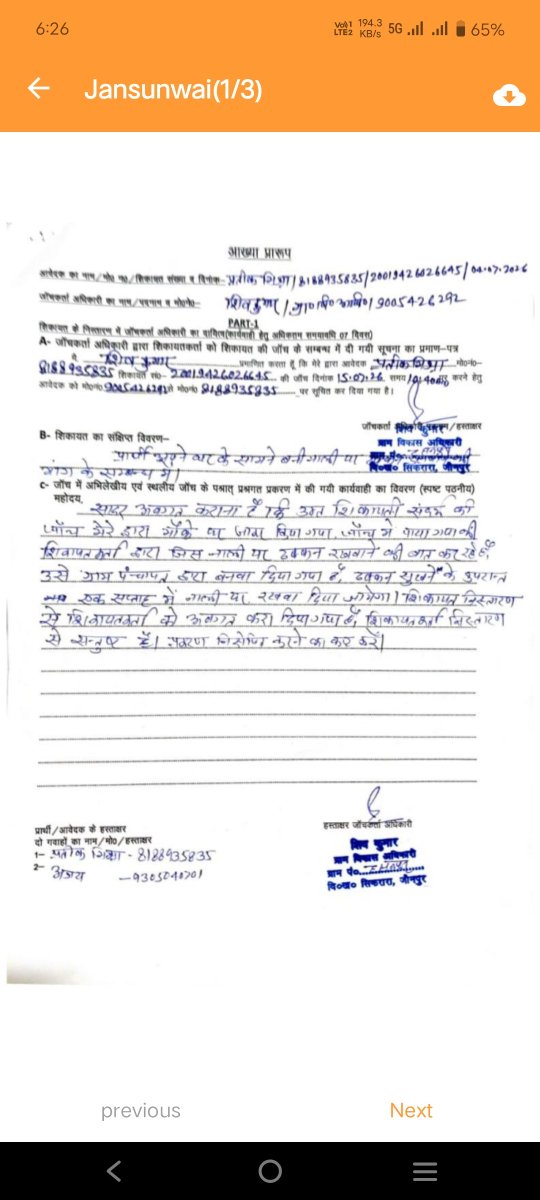 6:26
Vo1
LTE2
194.3
KB/s
5G
65%
Jansunwai(1/3)
आख्या प्रारूप
आवेदक का नाम/मो० न०/शिकायत संख्या व दिनांक- प्रतीक मिश्रा/8188935835/20019426026645/04.07.2026
जॉचकर्ता अधिकारी का नाम/पदनाम व मो०नं०- शिव कुमार/ग्रा०वि०अधि०/9005426292
PART-1
शिकायत के निस्तारण में जॉचकर्ता अधिकारी का दायित्व(कार्यवाही हेतु अधिकतम समयावधि 07 दिवस)
A- जॉचकर्ता अधिकारी द्वारा शिकायतकर्ता को शिकायत की जॉच के सम्बन्ध में दी गयी सूचना का प्रमाण-पत्र
मै शिव कुमार प्रमाणित करता हूँ कि मेरे द्वारा आवेदक प्रतीक मिश्रा मो०नं०-
8188935835 शिकायत सं०- 20019426026645 की जॉच दिनांक 15.07.26 समय करने हेतु
आवेदक को मो०नं० से मो०नं० 8188935835 पर सूचित कर दिया गया है।
जॉचकर्ता हस्ताक्षर
शिव कुमार
ग्राम विकास अधिकारी
वि०ख० सिकरारा, जौनपुर
B- शिकायत का संक्षिप्त विवरण-
प्रार्थी अपने घर के सामने बनी नाली पर
मांग के सम्बन्ध में।
C- जॉच में अभिलेखीय एवं स्थलीय जॉच के पश्चात् प्रश्नगत प्रकरण में की गयी कार्यवाही का विवरण (स्पष्ट पठनीय)
महोदय,
सादर अवगत कराना है कि उक्त शिकायती संदर्भ की
जॉच मेरे द्वारा मौके पर जाकर किया गया, जॉच में पाया गया की
शिकायतकर्ता द्वारा जिस नाली पर ढक्कन रखवाने की बात कर रहे हैं,
उसे ग्राम पंचायत द्वारा बनवा दिया गया है, ढक्कन सुखने के उपरान्त
एक सप्ताह में नाली पर रखवा दिया जायेगा। शिकायत निस्तारण
से शिकायतकर्ता को अवगत करा दिया गया है, शिकायतकर्ता निस्तारण
से सन्तुष्ट है। प्रकरण निक्षेपित करने का कष्ट करें।
हस्ताक्षर जॉचकर्ता अधिकारी
प्रार्थी/आवेदक के हस्ताक्षर
दो गवाहों का नाम/मो०/हस्ताक्षर
1- प्रतीक मिश्रा - 8188935835
2- अजय - 9305040701
शिव कुमार
ग्राम विकास अधिकारी
ग्राम पं०
वि०ख० सिकरारा, जौनपुर
previous
Next